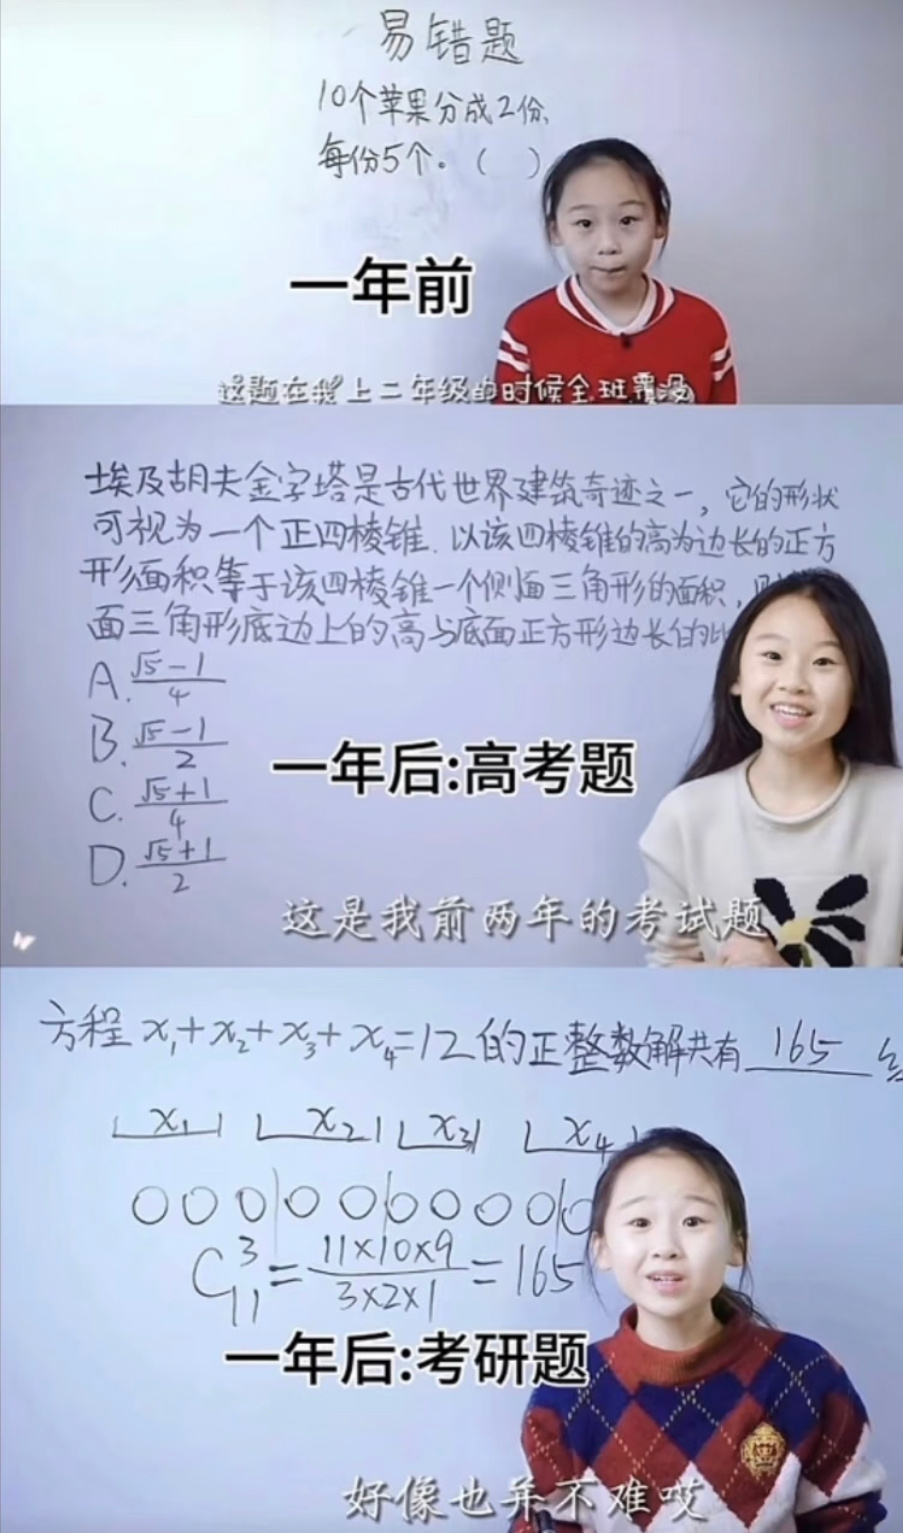 易错题
10个苹果分成2份,
每份5个。( )
一年前
这题在我上二年级的时候全班覆没
埃及胡夫金字塔是古代世界建筑奇迹之一,它的形状
可视为一个正四棱锥.以该四棱锥的高为边长的正方
形面积等于该四棱锥一个侧面三角形的面积,
面三角形底边上的高与底面正方形边长的比
A. √5-1/4
B. √5-1/2
一年后:高考题
C. √5+1/4
D. √5+1/2
这是我前两年的考试题
方程 x₁+x₂+x₃+x₄=12的正整数解共有 165
x₁ x₂ x₃ x₄
C₁₁³ = 11×10×9/3×2×1 = 165
一年后:考研题
好像也并不难哎